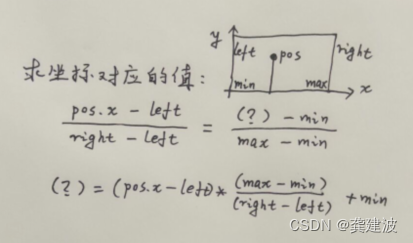 y
left
pos
right
min
max
x
求坐标对应的值:
pos.x - left / right - left = (?) - min / max - min
(?) = (pos.x - left) * (max - min) / (right - left) + min
CSDN @龚建波